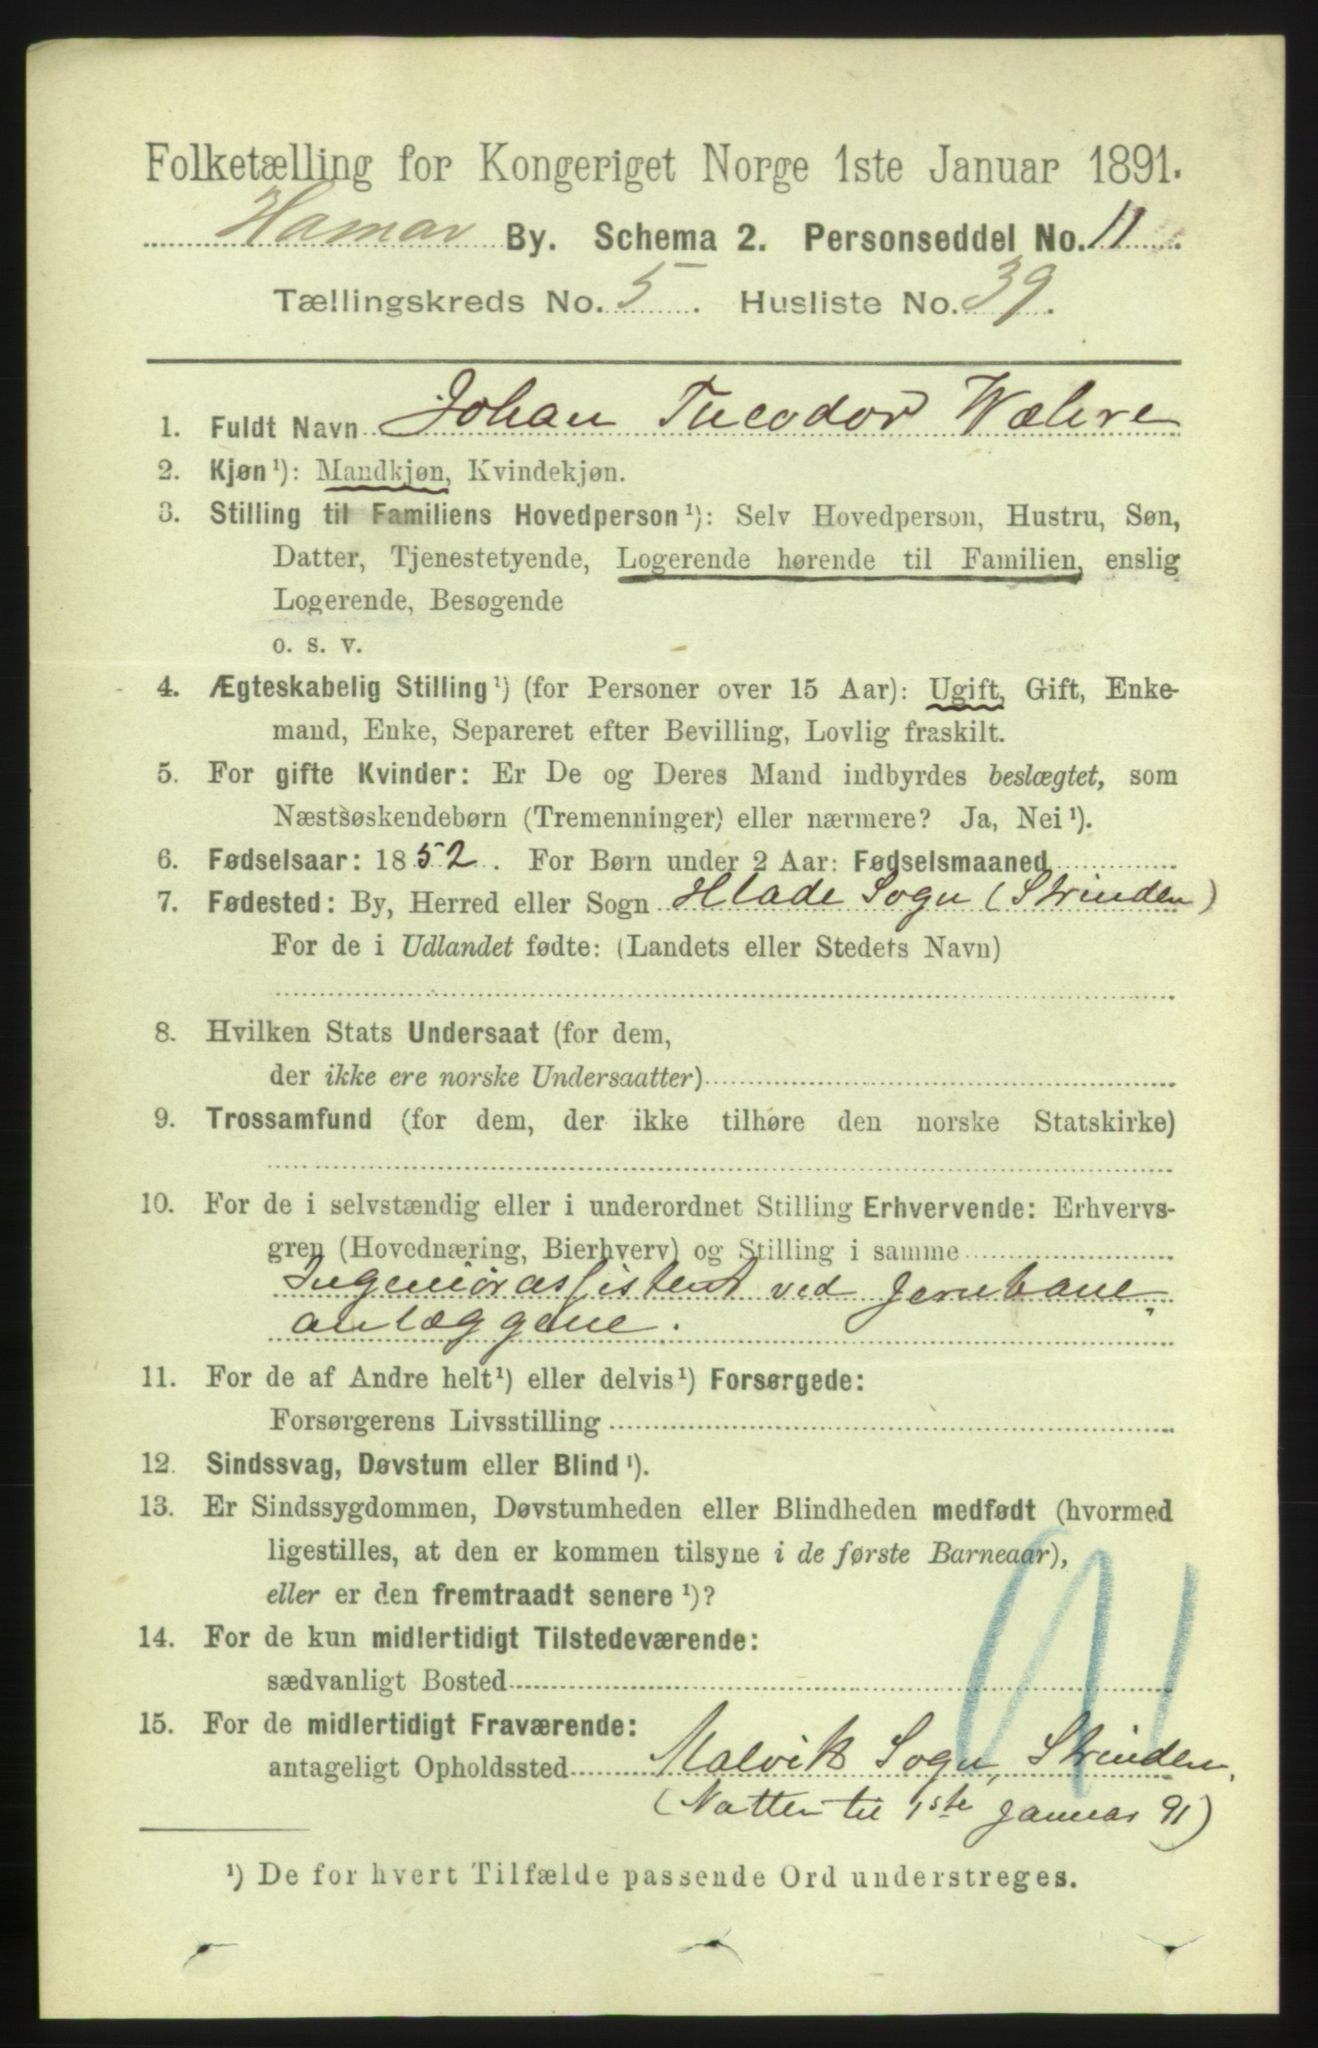 Folketælling for Kongeriget Norge 1ste Januar 1891.
Hamar By. Schema 2. Personseddel No. 11.
Tællingskreds No. 5. Husliste No. 39.
1. Fuldt Navn Johan Theodor Wæhre
2. Kjøn¹): Mandkjøn, Kvindekjøn.
3. Stilling til Familiens Hovedperson¹): Selv Hovedperson, Hustru, Søn,
Datter, Tjenestetyende, Logerende hørende til Familien, enslig
Logerende, Besøgende
o. s. v.
4. Ægteskabelig Stilling¹) (for Personer over 15 Aar): Ugift, Gift, Enke-
mand, Enke, Separeret efter Bevilling, Lovlig fraskilt.
5. For gifte Kvinder: Er De og Deres Mand indbyrdes beslægtet, som
Næstsøskendebørn (Tremenninger) eller nærmere? Ja, Nei¹).
6. Fødselsaar: 1852. For Børn under 2 Aar: Fødselsmaaned
7. Fødested: By, Herred eller Sogn Hlade Sogn (Strinden)
For de i Udlandet fødte: (Landets eller Stedets Navn)
8. Hvilken Stats Undersaat (for dem,
der ikke ere norske Undersaatter)
9. Trossamfund (for dem, der ikke tilhøre den norske Statskirke)
10. For de i selvstændig eller i underordnet Stilling Erhvervende: Erhvervs-
gren (Hovednæring, Bierhverv) og Stilling i samme
Ingeniørassistent ved Jernbane
anlæggene.
11. For de af Andre helt¹) eller delvis¹) Forsørgede:
Forsørgerens Livsstilling
12. Sindssvag, Døvstum eller Blind¹).
13. Er Sindssygdommen, Døvstumheden eller Blindheden medfødt (hvormed
ligestilles, at den er kommen tilsyne i de første Barneaar),
eller er den fremtraadt senere¹)?
14. For de kun midlertidigt Tilstedeværende:
sædvanligt Bosted
15. For de midlertidigt Fraværende:
antageligt Opholdssted Malvik Sogn, Strinden.
(Natten til 1ste Januar 91)
¹) De for hvert Tilfælde passende Ord understreges.